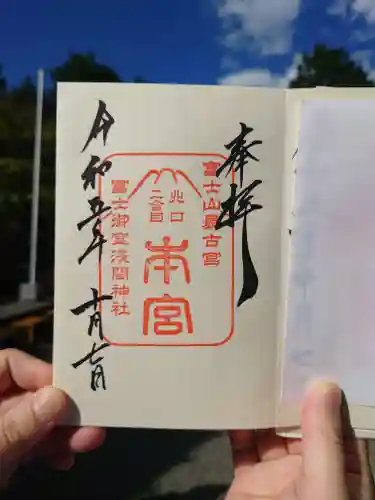 奉拝
富士山最古宮
北口
二合目
本宮
冨士御室浅間神社
令和五年
十月七日